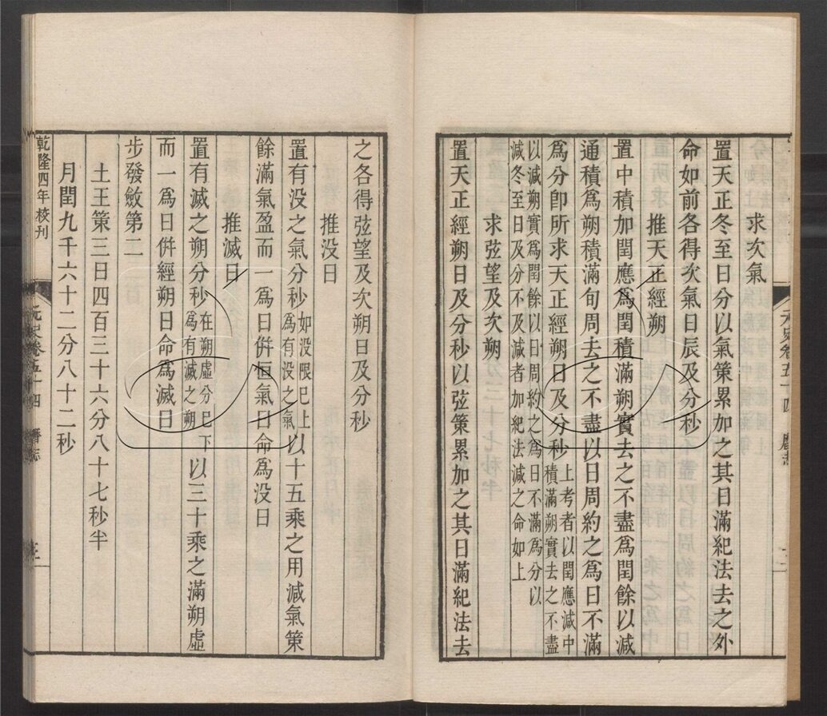 求次氣
置天正冬至日分以氣策累加之其日滿紀法去之外
命如前各得次氣日辰及分秒
推天正經朔
置中積加閏應爲閏積滿朔實去之不盡爲閏餘以減
通積爲朔積滿旬周去之不盡以日周約之爲日不滿
爲分卽所求天正經朔日及分秒上考者以閏應減中
積滿朔實去之不盡
以減朔實爲閏餘以日周約之爲日不滿爲分以
減冬至日及分不及減者加紀法減之命如上
求弦望及次朔
置天正經朔日及分秒以弦策累加之其日滿紀法去
之各得弦望及次朔日及分秒
推没日
置有没之氣分秒如没限已上
爲有没之氣以十五乘之用減氣策
餘滿氣盈而一爲日併恒氣日命爲没日
推滅日
置有滅之朔分秒在朔虛分已下
爲有滅之朔以三十乘之滿朔虛
而一爲日併經朔日命爲滅日
步發斂第二
土王策三日四百三十六分八十七秒半
月閏九千六十二分八十二秒
乾隆四年校刊
元史卷五十四 曆志